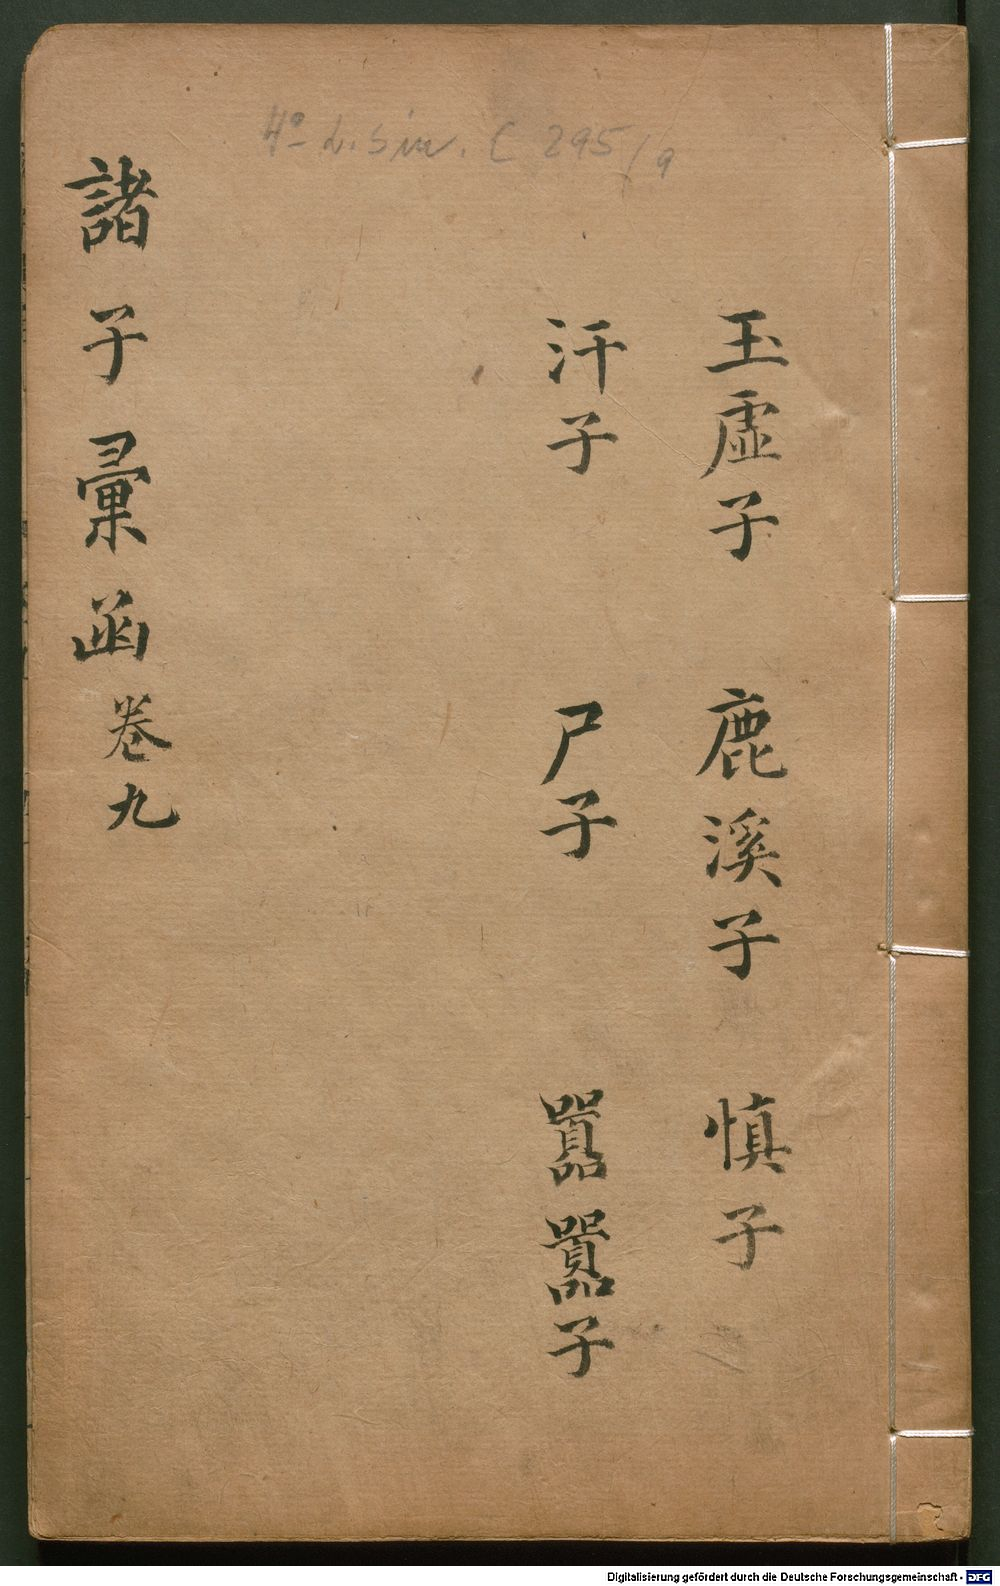 4° L. sin. C 295/9
玉虛子 鹿溪子 慎子
汗子 尸子 嚣嚣子
諸子彙函 卷九
Digitalisierung gefördert durch die Deutsche Forschungsgemeinschaft - DFG